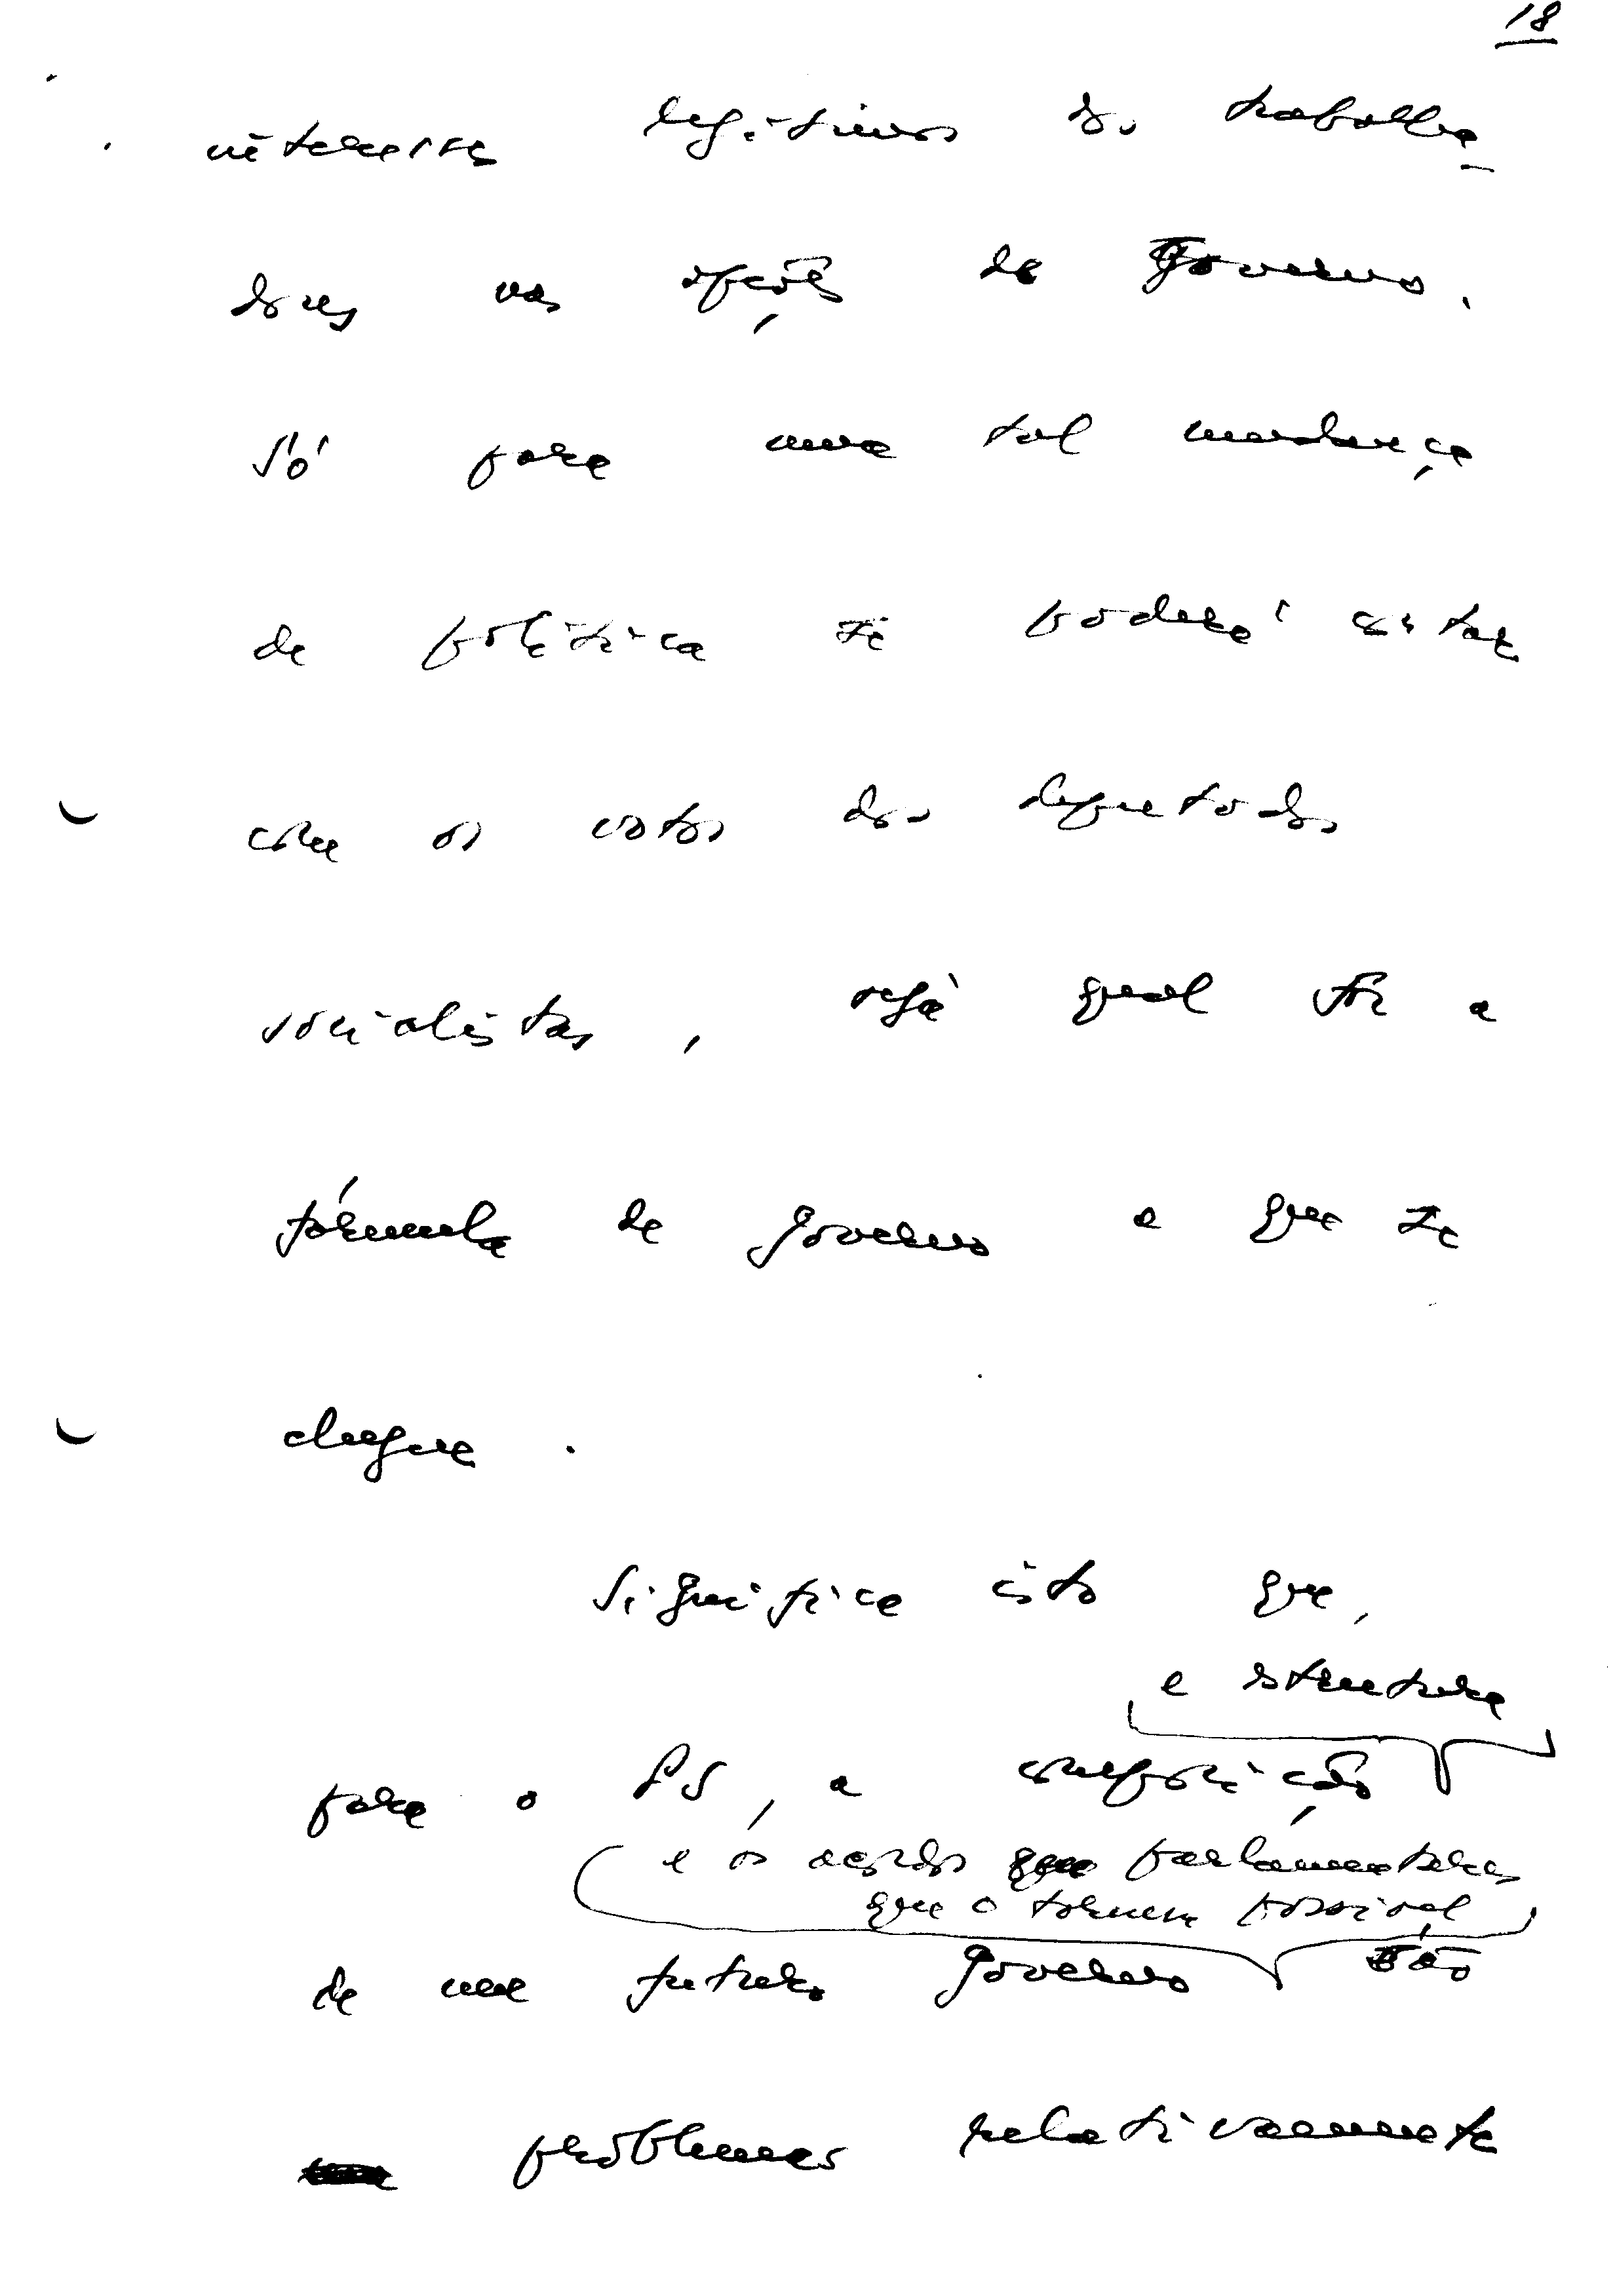 18
interesses legítimos dos trabalha-
dores nas opções do Governo.
Só para uma tal mudança
de política se poderá contar
com os votos dos deputados
socialistas, seja qual for a
fórmula de governo a que se
chegue.
Significa isto que,
e estrutura
para o PS, a composição
e os acordos parlamentares
que o tornem possível
de um futuro Governo são
problemas relativamente